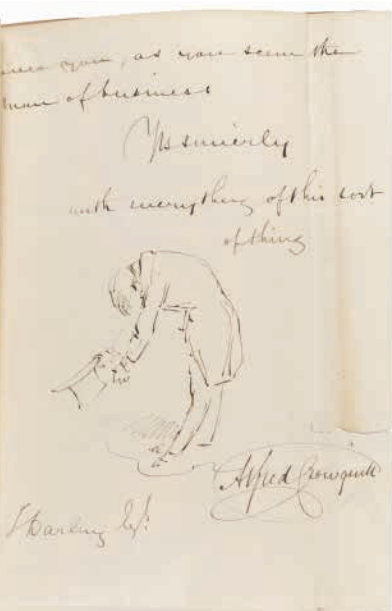 you, as you seem the
man of business
Yrs sincerely
with everything of this sort
of thing
Alfred Crowquill
Darling Esq.